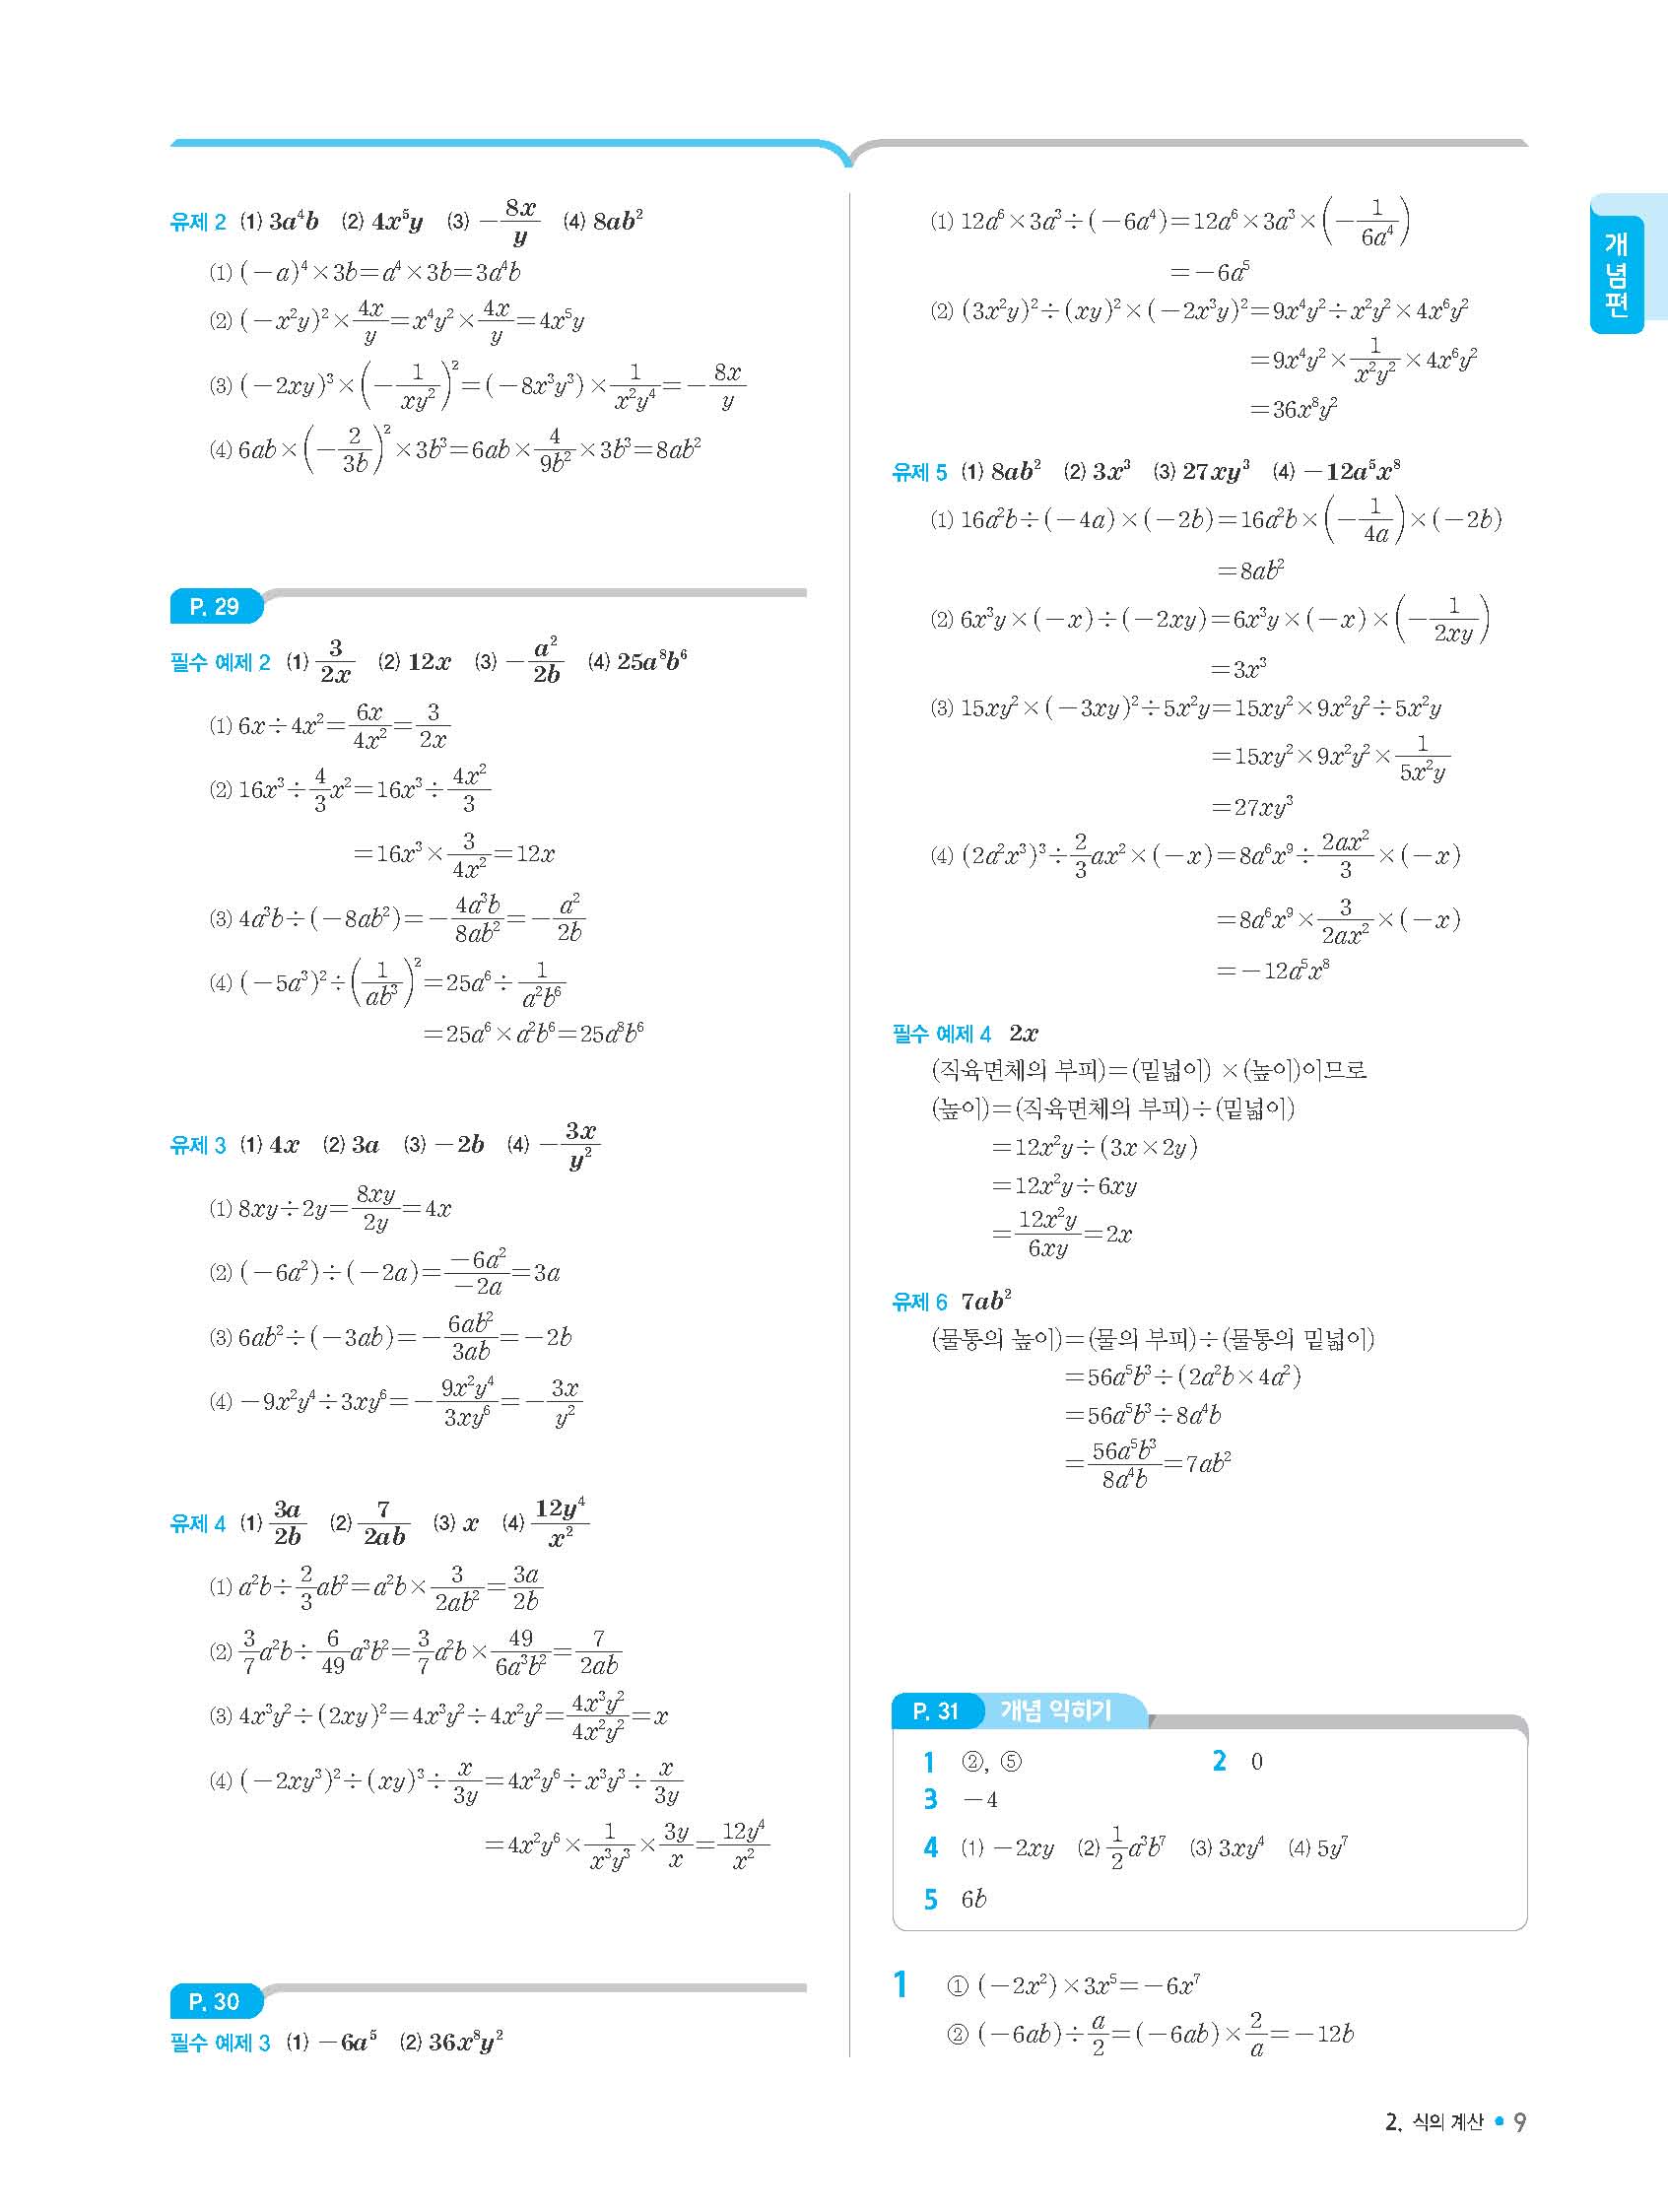 유제 2 (1) 3a⁴b (2) 4x⁵y (3) −8x/y (4) 8ab²
(1) (−a)⁴×3b=a⁴×3b=3a⁴b
(2) (−x²y)²×4x/y=x⁴y²×4x/y=4x⁵y
(3) (−2xy)³×(−1/xy²)²=(−8x³y³)×1/x²y⁴=−8x/y
(4) 6ab×(−2/3b)²×3b³=6ab×4/9b²×3b³=8ab²
P. 29
필수 예제 2 (1) 3/2x (2) 12x (3) −a²/2b (4) 25a⁸b⁶
(1) 6x÷4x²=6x/4x²=3/2x
(2) 16x³÷4/3x²=16x³÷4x²/3
=16x³×3/4x²=12x
(3) 4a³b÷(−8ab²)=−4a³b/8ab²=−a²/2b
(4) (−5a³)²÷(1/ab³)²=25a⁶÷1/a²b⁶
=25a⁶×a²b⁶=25a⁸b⁶
유제 3 (1) 4x (2) 3a (3) −2b (4) −3x/y²
(1) 8xy÷2y=8xy/2y=4x
(2) (−6a²)÷(−2a)=−6a²/−2a=3a
(3) 6ab²÷(−3ab)=−6ab²/3ab=−2b
(4) −9x²y⁴÷3xy⁶=−9x²y⁴/3xy⁶=−3x/y²
유제 4 (1) 3a/2b (2) 7/2ab (3) x (4) 12y⁴/x²
(1) a²b÷2/3ab²=a²b×3/2ab²=3a/2b
(2) 3/7a²b÷6/49a³b²=3/7a²b×49/6a³b²=7/2ab
(3) 4x³y²÷(2xy)²=4x³y²÷4x²y²=4x³y²/4x²y²=x
(4) (−2xy³)²÷(xy)³÷x/3y=4x²y⁶÷x³y³÷x/3y
=4x²y⁶×1/x³y³×3y/x=12y⁴/x²
P. 30
필수 예제 3 (1) −6a⁵ (2) 36x⁸y²
(1) 12a⁶×3a³÷(−6a⁴)=12a⁶×3a³×(−1/6a⁴)
=−6a⁵
(2) (3x²y)²÷(xy)²×(−2x³y)²=9x⁴y²÷x²y²×4x⁶y²
=9x⁴y²×1/x²y²×4x⁶y²
=36x⁸y²
유제 5 (1) 8ab² (2) 3x³ (3) 27xy³ (4) −12a⁵x⁸
(1) 16a²b÷(−4a)×(−2b)=16a²b×(−1/4a)×(−2b)
=8ab²
(2) 6x³y×(−x)÷(−2xy)=6x³y×(−x)×(−1/2xy)
=3x³
(3) 15xy²×(−3xy)²÷5x²y=15xy²×9x²y²÷5x²y
=15xy²×9x²y²×1/5x²y
=27xy³
(4) (2a²x³)³÷2/3ax²×(−x)=8a⁶x⁹÷2ax²/3×(−x)
=8a⁶x⁹×3/2ax²×(−x)
=−12a⁵x⁸
필수 예제 4 2x
(직육면체의 부피)=(밑넓이) ×(높이)이므로
(높이)=(직육면체의 부피)÷(밑넓이)
=12x²y÷(3x×2y)
=12x²y÷6xy
=12x²y/6xy=2x
유제 6 7ab²
(물통의 높이)=(물의 부피)÷(물통의 밑넓이)
=56a⁵b³÷(2a²b×4a²)
=56a⁵b³÷8a⁴b
=56a⁵b³/8a⁴b=7ab²
P. 31 개념 익히기
1 ②, ⑤ 2 0
3 −4
4 (1) −2xy (2) 1/2a³b⁷ (3) 3xy⁴ (4) 5y⁷
5 6b
1 ① (−2x²)×3x⁵=−6x⁷
② (−6ab)÷a/2=(−6ab)×2/a=−12b
개념편
2. 식의 계산 • 9